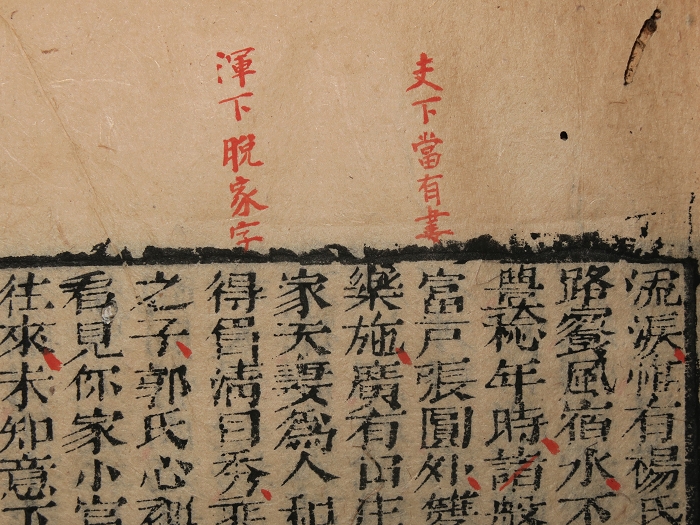 夫下當有妻
渾下脫家字
流淚惟有楊氏
路飡風宿水不
豊稔年時諸般
富戶張圓外
樂施廣有田庄
家天妻爲人和
得眉清目秀
之子郭氏心
看見你家小官
往來未知意下